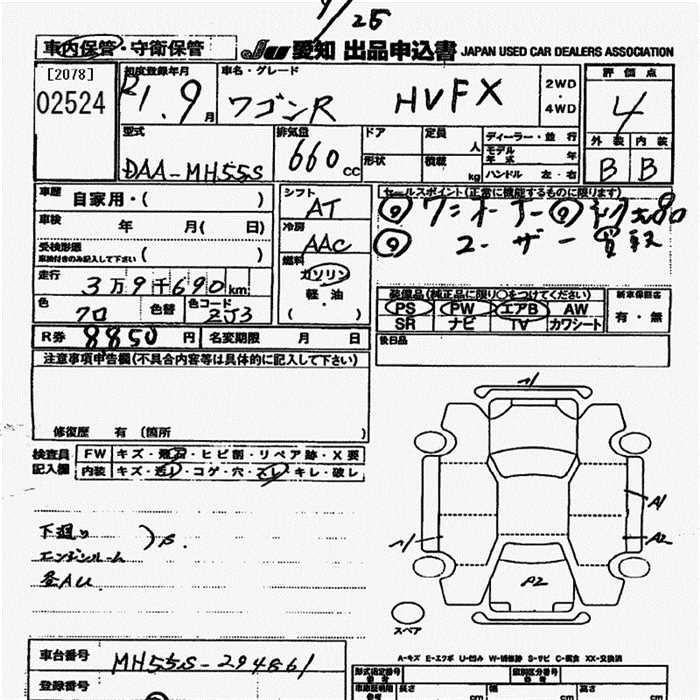 車内保管・守衛保管
JU 愛知 出品申込書 JAPAN USED CAR DEALERS ASSOCIATION
[2078]
02524
初度登録年月
R1.9月
車名・グレード
ワゴンR HVFX
2WD・4WD
評価点
4
型式
DAA-MH55S
排気量
660 CC
ドア
形状
定員 人
積載 kg
ディーラー・並行
モデル年式 年
ハンドル 左・右
外装 内装
B B
車歴 自家用・( )
車検 年 月( 日)
受検形態 ( )
車検付きのみ記入して下さい
走行 3万9千690km
色 クロ 色替 色コード ZJ3
シフト AT
冷房 AAC
燃料 ガソリン
軽・油
( ・ )
セールスポイント(正常に機能するものに限ります)
ワンオーナー
ユーザー買取
装備品(純正品に限り○をつけてください)
PS PW エアB AW
SR ナビ TV カワシート
新車保証書
有・無
後日品
R券 8850円 名変期限 月 日
注意事項申告欄(不具合内容等は具体的に記入して下さい)
修復歴 有 (箇所 )
検査員記入欄
FW キズ・飛石・ヒビ割・リペア跡・X要
内装 キズ・汚れ・コゲ・穴・スレ・キレ・破レ
下廻り
エンジンルーム
A1
A2
P2
スペア
A-キズ E-エクボ U-凹み W-補修跡 S-サビ C-腐食 XX-交換済
車台番号 MH55S-294861
登録番号
型式指定番号 類別区分番号
長さ cm 幅 cm 高さ cm